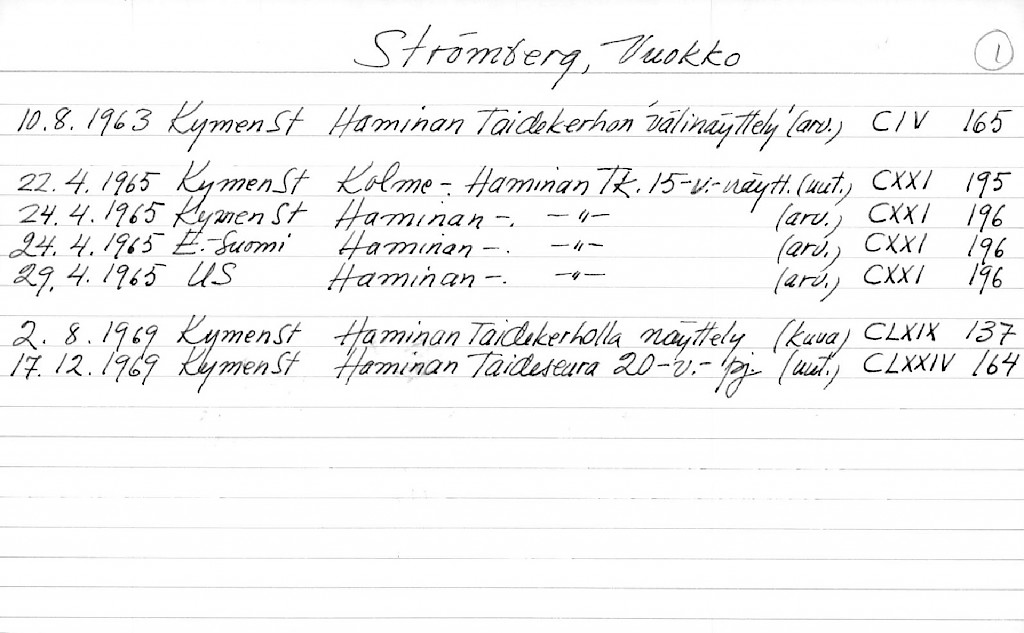 Strömberg, Vuokko 1
10.8.1963 KymenSt Haminan Taidekerhon 'välinäyttely' (arv.) CIV 165
22.4.1965 KymenSt Kolme-. Haminan Tk. 15-v.-näytt. (uut.) CXXI 195
24.4.1965 KymenSt Haminan -. -"- (arv.) CXXI 196
24.4.1965 E.-Suomi Haminan -. -"- (arv.) CXXI 196
29.4.1965 US Haminan -. -"- (arv.) CXXI 196
2.8.1969 KymenSt Haminan Taidekerholla näyttely (kuva) CLXIX 137
17.12.1969 KymenSt Haminan Taideseura 20-v.- pj. (uut.) CLXXIV 164